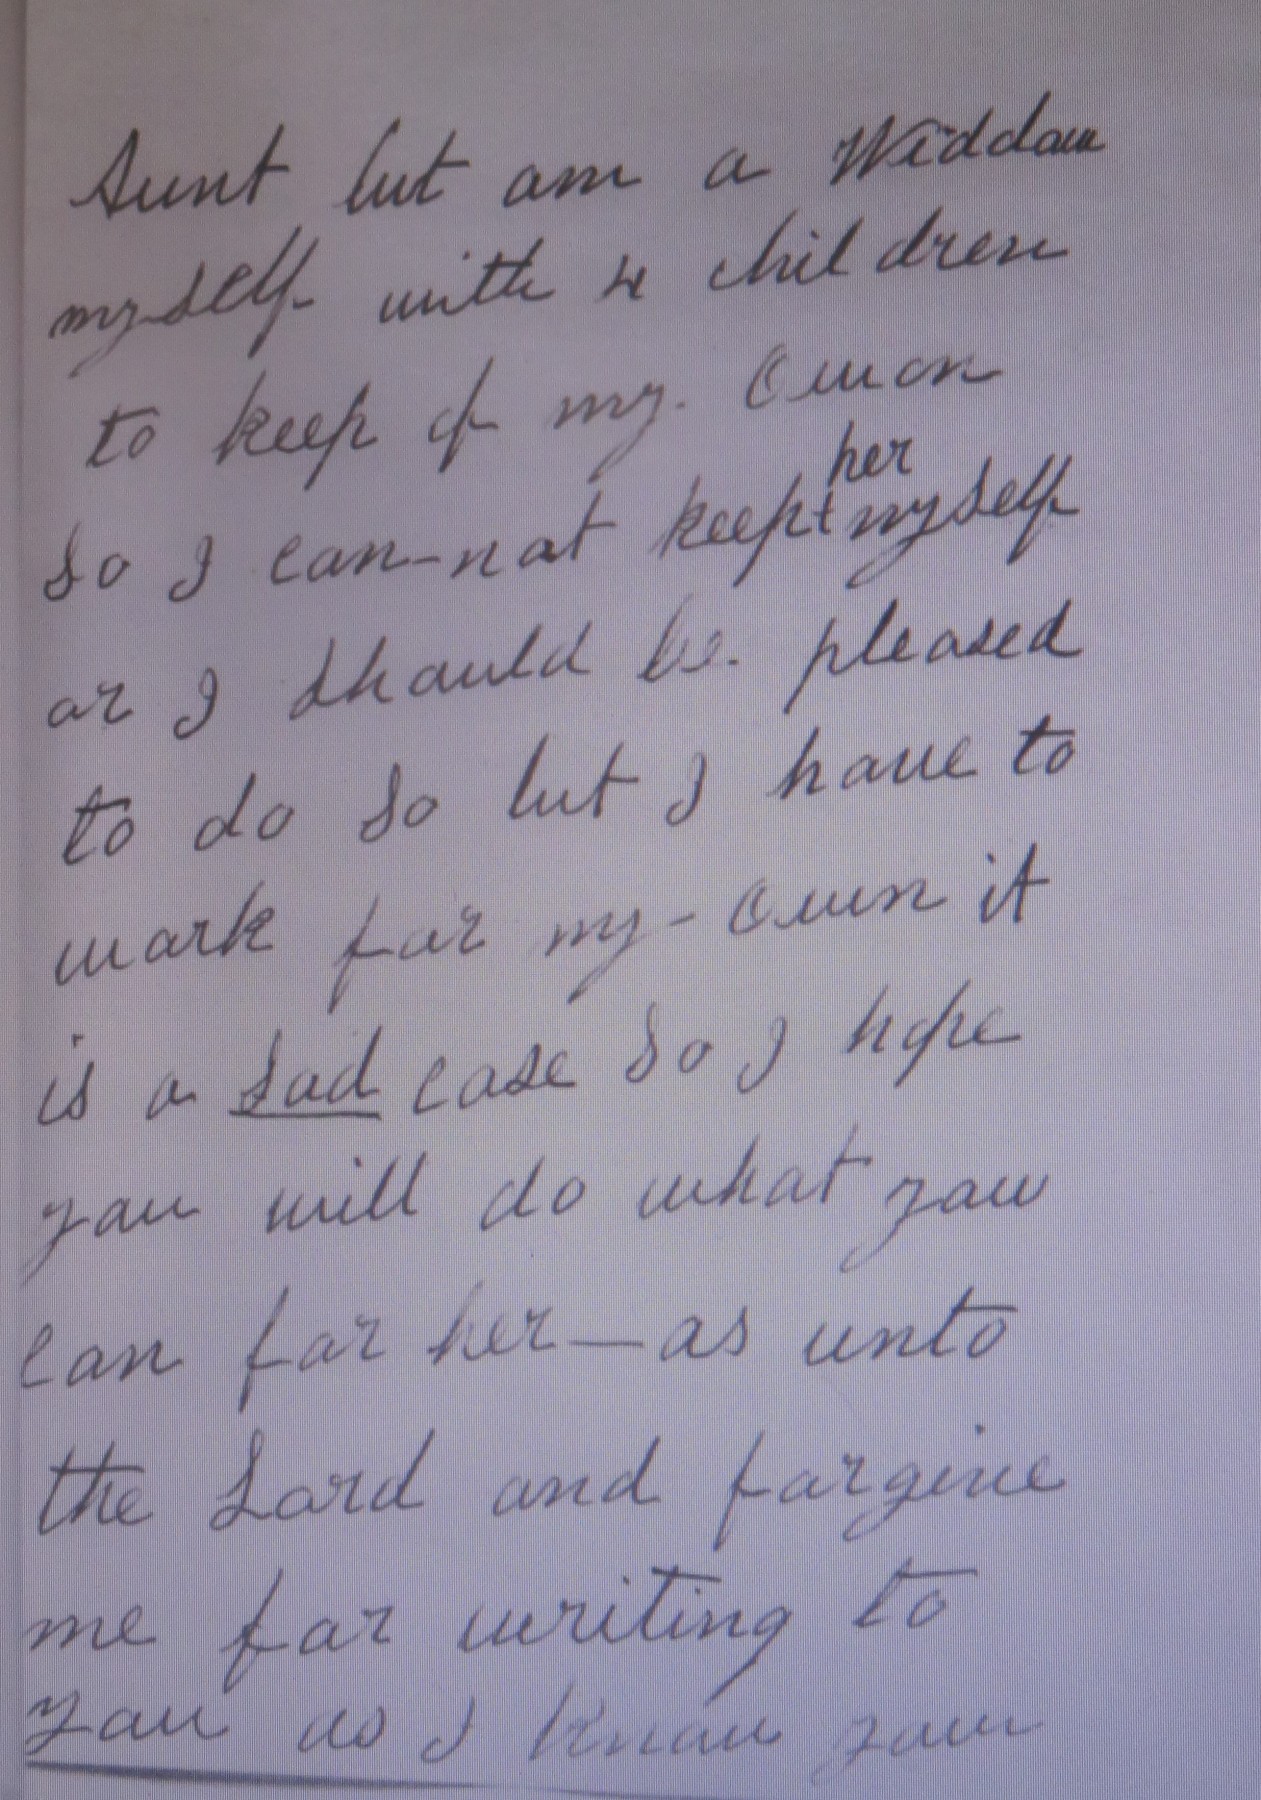 Aunt but am a Widdow
myself with 4 children
to keep of my. Owon
her
So I can-not keep myself
or I should be. pleased
to do so but I have to
work for my-own it
is a sad case So I hope
you will do what you
can for her—as unto
the Lord and forgive
me for writing to
you as I know you